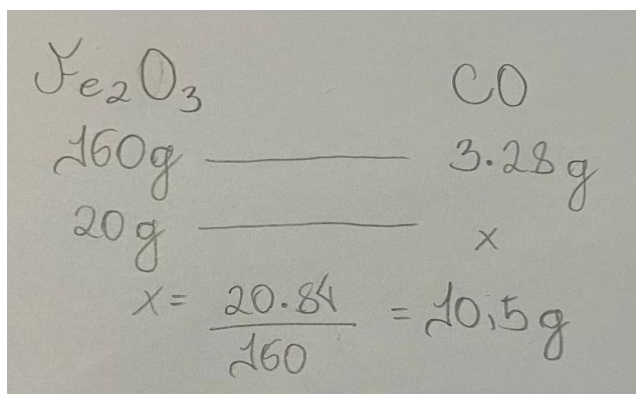 Fe₂O₃ CO
160g — 3.28g
20g — x
x = 20.84 / 160 = 10,5g